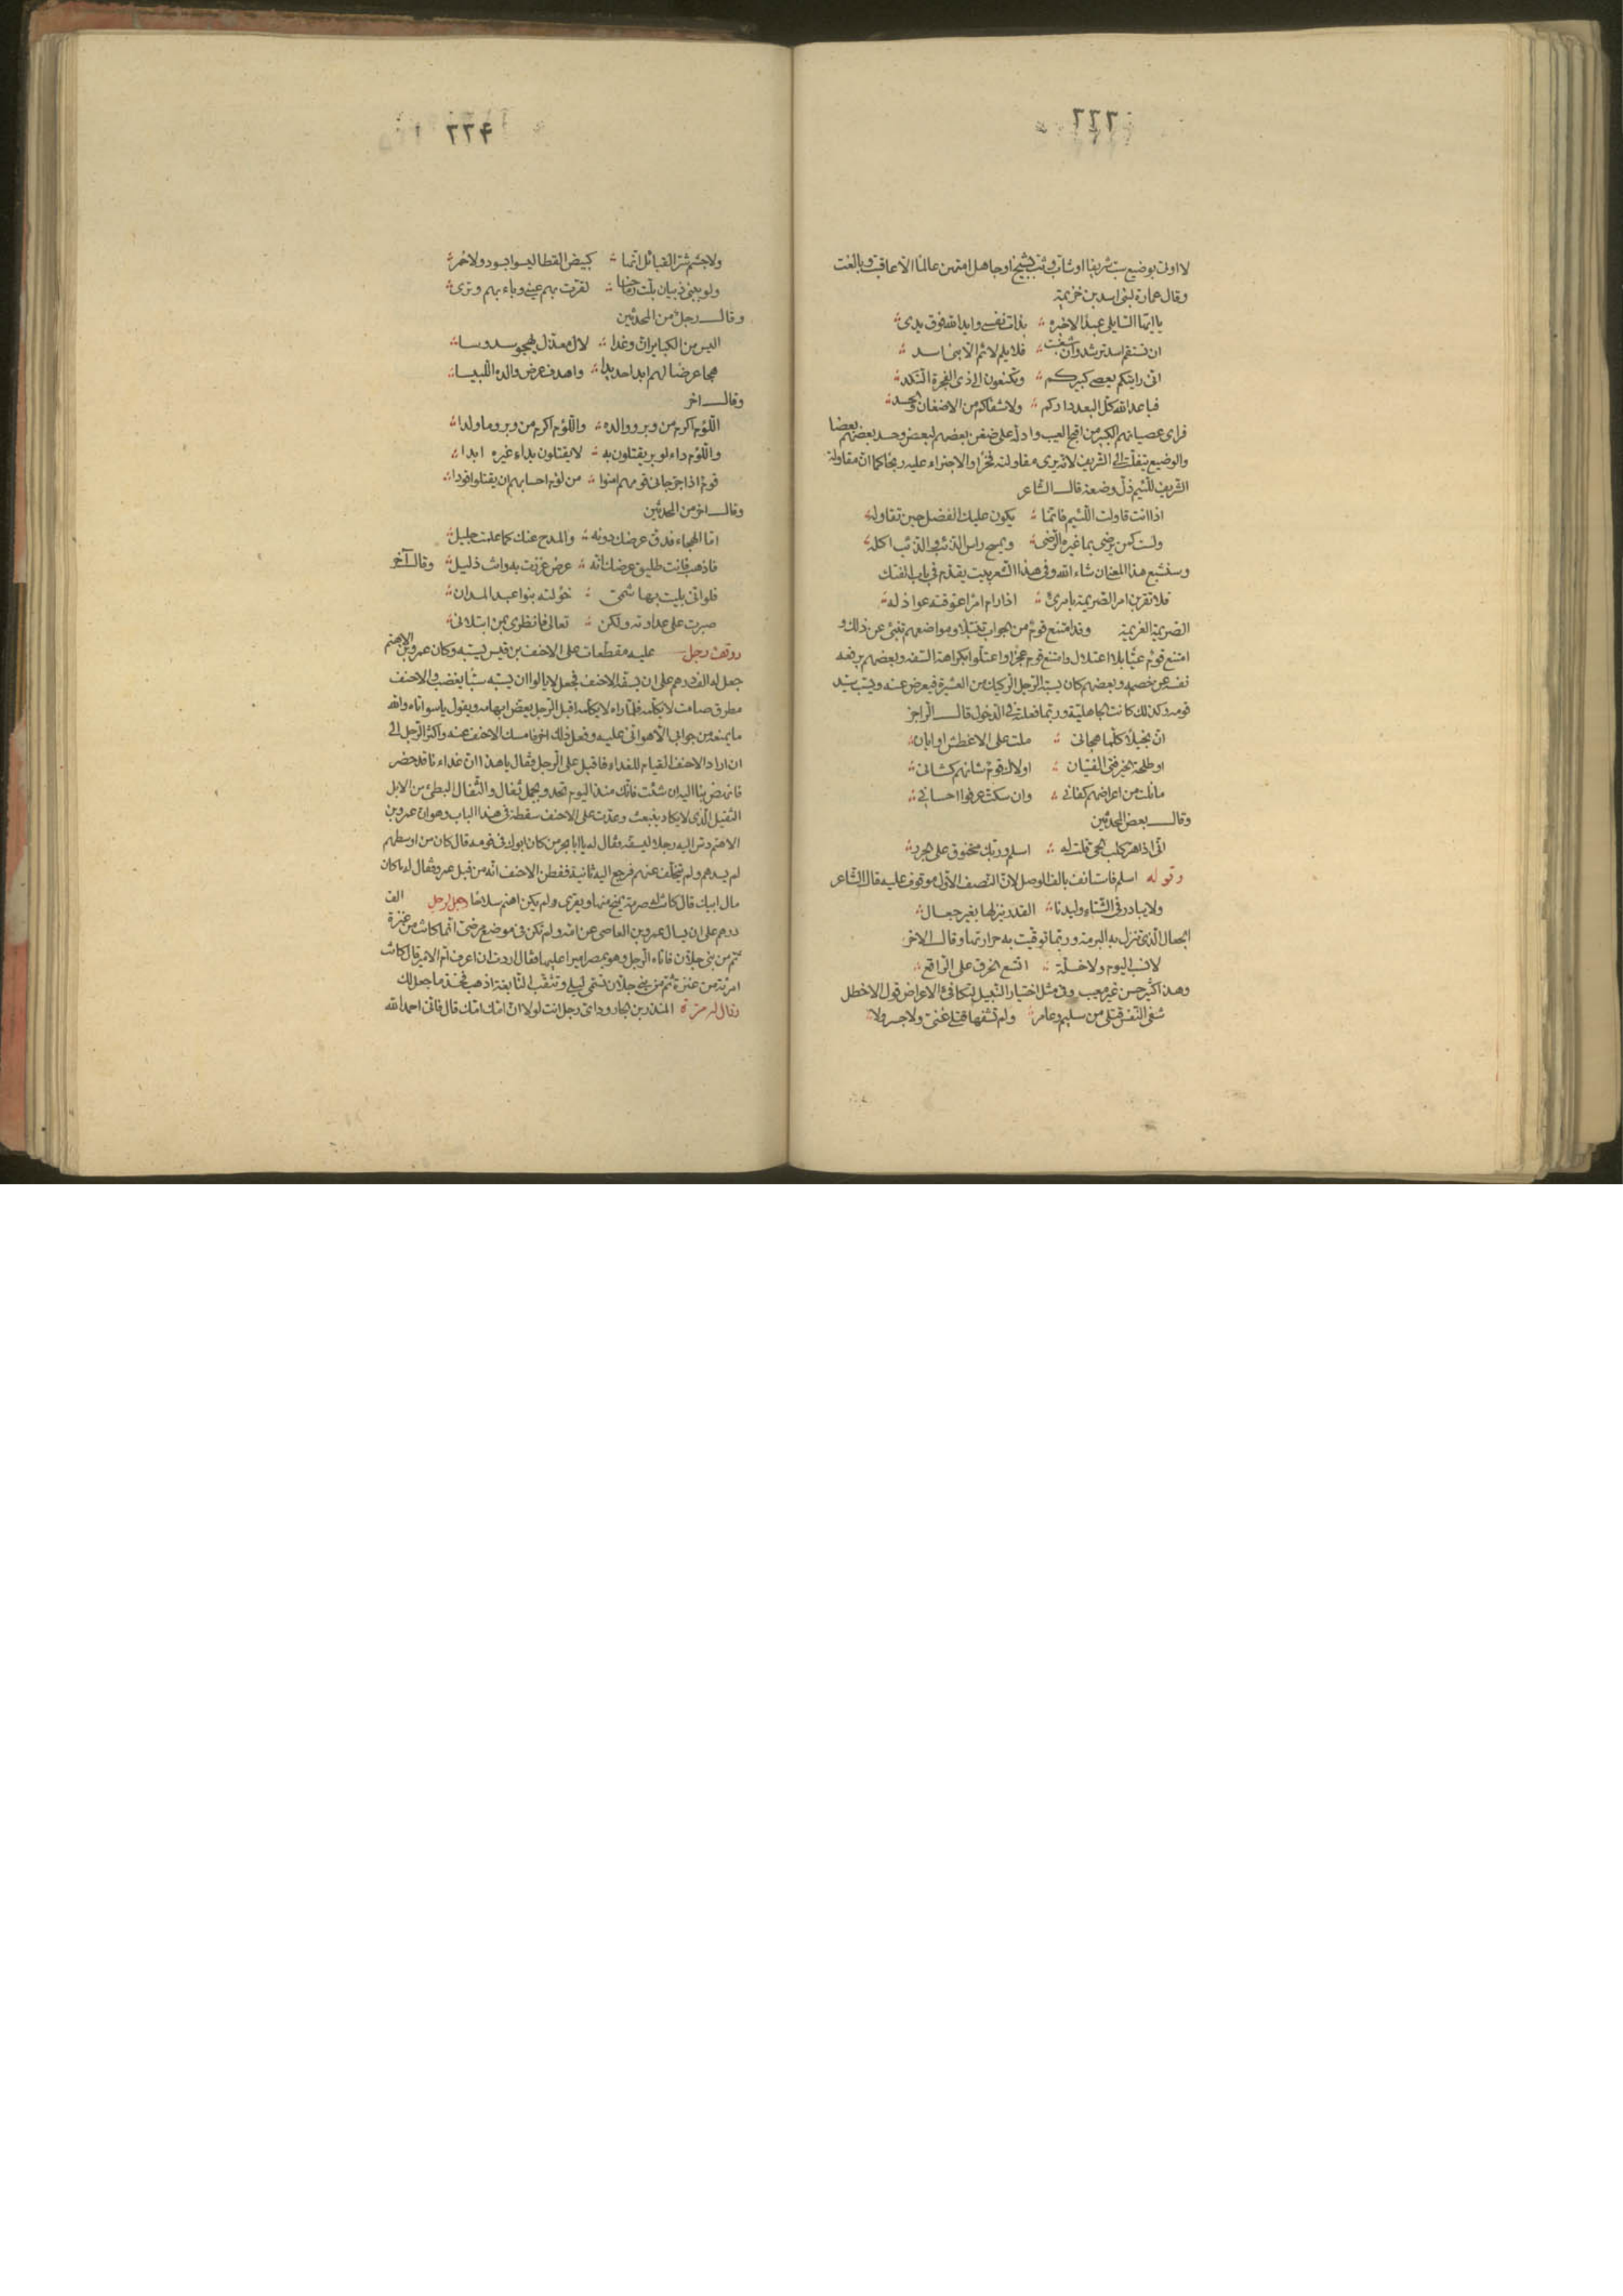 ٢٢٣
لا اوتى بوضيع سبّ شريفا او شابّ وثب بشيخ او جاهل امتهن عالما الا عاقبت وبالغت
وقال عمارة لبنى اسد بن خزيمة
يا ايّها السايلى عمدا لاخبره ؞ بذات نفسى وايد الله فوق يدى ؞
ان تستقم اسد ترشد وان شغبت ؞ فلا يلم لائم الا بنى اسد ؞
انى رايتكم يعصى كبيركم ؞ وتكنعون الى ذى الفجرة النّكد ؞
فباعد الله كلّ البعد داركم ؞ ولا شفاكم من الاضغان والحسد ؞
فراى عصيانهم الكبير من اقبح العيب وادلّه على ضغن بعضهم لبعض وحسد بعضهم بعضا
والوضيع يتفلّت الى الشريف لانّه يرى مقاولته فخرا والاجتراء عليه ربحا كما انّ مقاولة
الشريف للّئيم ذلّ وضعة قال الشاعر
اذا انت قاولت اللّئيم فانّما ؞ يكون عليك الفضل حين تقاوله ؞
ولست كمن يرضى بما غيره الرّضى ؞ ويمسح راس الذئب والذئب اكله ؞
وسنشبع هذا المعنى ان شاء الله وفى هذا الشعر بيت يقدّم فى باب الفتك
فلا تقربن امر الصّريمة بامرئ ؞ اذا رام امرا عوّقته عواذله ؞
الصّريمة العزيمة وقد امتنع قوم من الجواب تنبّلا ومواضعهم تنبئ عن ذلك و
امتنع قوم عيّا بلا اعتلال وامتنع قوم عجزا واعتلّوا بكراهة السّفه وبعضهم يرفعه
نفسه عن خصمه وبعضهم كان يسبّه الرّجل الرّكيك من العشيرة فيعرض عنه ويسبّ سيّد
قومه وكذلك كانت الجاهليّة وربّما فعلته فى الدخول قال الراجز
انّ بخيلا كلّما هجانى ؞ ملت على الاغطش او ابان ؞
او طلحة الخير فتى الفتيان ؞ اولاك قوم شانهم كشانى ؞
ما نلت من اعراضهم كفانى ؞ وان سكتّ عرفوا احسانى ؞
وقال بعض المحدثين
انّى اذا هرّ كلب الحىّ قلت له ؞ اسلم وربّك مخنوق على الجرر ؞
وقوله اسلم فاستانف بالف الوصل لانّ النّصف الاوّل موقوف عليه قال الشاعر
ولا يبادر فى الشتاء وليدنا ؞ القدر ينزلها بغير جعال ؞
الجعال الّذى تنزل به البرمة وربّما توقّيت به حرارتها وقال الاخر
لا نسب اليوم ولا خلّة ؞ اتّسع الخرق على الرّاقع ؞
وهذا كثير حسن غير معيب وفى مثل اختيار النّبيل لتكافئ الاعراض قول الاخطل
شفى النّفس قتلى من سليم وعامر ؞ ولم تشفها قتلى غنى ولا جسر ولا ؞
٢٢۴
ولا جشم شرّ القبائل انّها ؞ كبيض القطا ليسوا بسود ولا حمر ؞
ولو ببنى ذبيان بلّت رماحنا ؞ لقرّت بهم عينى وباء بهم وترى ؞
وقال رجل من المحدثين
اليس من الكبائر انّ وغدا ؞ لال معذّل يهجو سدوسا ؞
هجا عرضا لهم ابدا جديدا ؞ واهدف عرض والده اللّبيسا ؞
وقال اخر
اللّؤم اكرم من وبر ووالده ؞ واللّؤم اكرم من وبر وما ولدا ؞
واللّؤم داء لوبر يقتلون به ؞ لا يقتلون بداء غيره ابدا ؞
قوم اذا جرّ جانى قومهم امنوا ؞ من لؤم احسابهم ان يقتلوا قودا ؞
وقال اخر من المحدثين
امّا الهجاء فدقّ عرضك دونه ؞ والمدح عنك كما علمت جليل ؞
فاذهب فانت طليق عرضك انّه ؞ عرض عززت به وانت ذليل ؞ وقال آخر
فلو انّى بليت بهاشمىّ ؞ خؤلته بنوا عبد المدان ؞
صبرت على عداوته ولكن ؞ تعالى فانظرى بمن ابتلانى ؞
ووقف رجل عليه مقطّعات على الاحنف بن قيس يسبّه وكان عمرو بن الاهتم
جعل له الف درهم على ان يسفّه الاحنف فجعل لا يالوا ان يسبّه سبّا يغضب والاحنف
مطرق صامت لا يكلّمه فلمّا راه لا يكلّمه اقبل الرّجل يعضّ ابهامه ويقول يا سواتاه والله
ما يمنعه من جوابى الا هوانى عليه وفعل ذلك اخر فامسك الاحنف عنه واكثر الرّجل الى
ان اراد الاحنف القيام للغداء فاقبل على الرجل فقال يا هذا انّ غداءنا قد حضر
فانهض بنا اليه ان شئت فانّك منذ اليوم تحدو بجمل ثفال والثّفال البطئ من الابل
الثقيل الّذى لا يكاد ينبعث وعدّت على الاحنف سقطة فى هذا الباب وهو ان عمرو بن
الاهتم دسّ اليه رجلا ليسفّهه فقال له يا ابا بحر من كان ابوك فى قومه قال كان من اوسطهم
لم يسدهم ولم يتخلّف عنهم فرجع اليه ثانية ففطن الاحنف انّه من قبل عمرو فقال له ما كان
مال ابيك قال كانت له صرمة يمنح منها ويقرى ولم يكن اهتم سلّاحا وجعل لرجل الف
درهم على ان يسال عمرو بن العاصى عن امّه ولم تكن فى موضع مرضىّ انّما كانت من عنزة
ثمّ من بنى جلّان فاتاه الرّجل وهو بمصر اميرا عليها فقال اردت ان اعرف امّ الامير قال كانت
امرءة من عنزة ثمّ من بنى جلّان تسمّى ليلى وتلقّب النّابغة اذهب فخذ ما جعل لك
وقال له مرّة المنذر بن الجارود اىّ رجل انت لولا انّ امّك امّك قال فانّى احمد الله